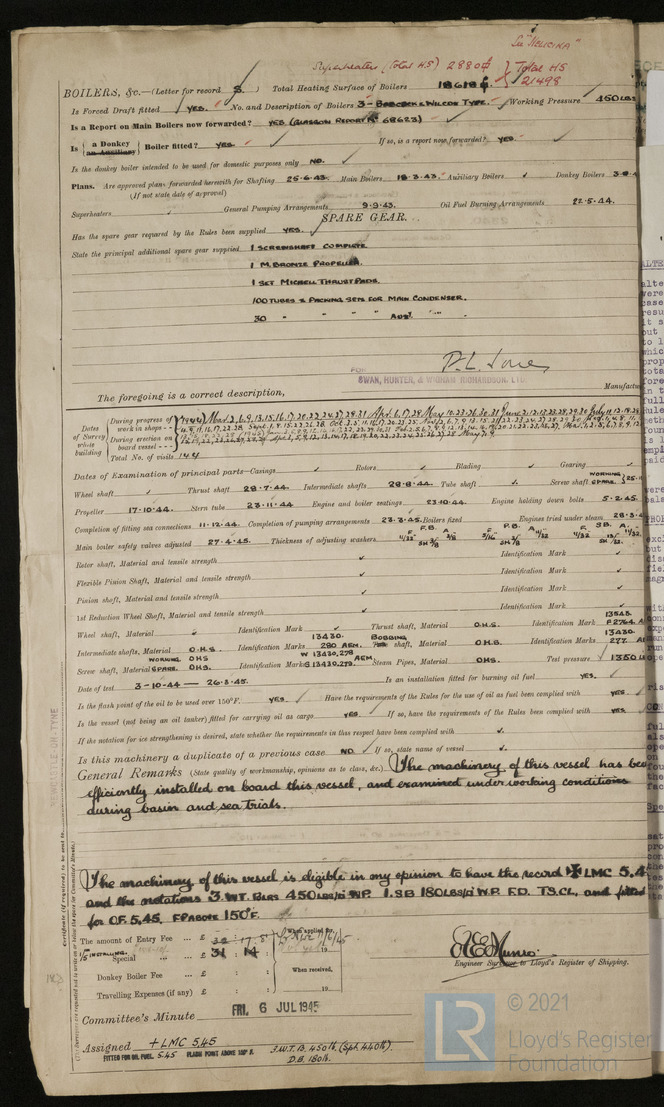 See "HELICINA"
Superheater (Total H.S) 2880 } Total HS
21498
BOILERS, &c.—(Letter for record S.) Total Heating Surface of Boilers 18618
Is Forced Draft fitted YES. No. and Description of Boilers 3 - BABCOCK & WILCOX TYPE. Working Pressure 450 LBS
Is a Report on Main Boilers now forwarded? YES (GLASGOW REPORT No 68623)
Is { a Donkey / an Auxiliary } Boiler fitted? YES. If so, is a report now forwarded? YES.
Is the donkey boiler intended to be used for domestic purposes only NO.
Plans. Are approved plans forwarded herewith for Shafting 25.6.43. Main Boilers 18.3.43. Auxiliary Boilers ✓ Donkey Boilers
(If not state date of approval)
Superheaters General Pumping Arrangements 9.9.43. Oil Fuel Burning Arrangements 22.5.44.
SPARE GEAR.
Has the spare gear required by the Rules been supplied YES.
State the principal additional spare gear supplied 1 SCREWSHAFT COMPLETE
1 M. BRONZE PROPELLER.
1 SET MICHELL THRUST PADS.
100 TUBES & PACKING SETS FOR MAIN CONDENSER.
30 " " " " AUX? " "
FOR
SWAN, HUNTER, & WIGHAM RICHARDSON, LTD.
The foregoing is a correct description, Manufactu
Dates of Survey while building
During progress of work in shops - -
During erection on board vessel - - -
Total No. of visits 144
Dates of Examination of principal parts—Casings ✓ Rotors ✓ Blading ✓ Gearing ✓
Wheel shaft ✓ Thrust shaft 28.7.44. Intermediate shafts 28.8.44. Tube shaft ✓ Screw shaft WORKING SPARE
Propeller 17.10.44. Stern tube 23.11.44 Engine and boiler seatings 23.10.44. Engine holding down bolts 5.2.45.
Completion of fitting sea connections 11.12.44. Completion of pumping arrangements 23.3.45. Boilers fixed Engines tried under steam
Main boiler safety valves adjusted 27.4.45. Thickness of adjusting washers
Rotor shaft, Material and tensile strength ✓ Identification Mark ✓
Flexible Pinion Shaft, Material and tensile strength ✓ Identification Mark ✓
Pinion shaft, Material and tensile strength ✓ Identification Mark ✓
1st Reduction Wheel Shaft, Material and tensile strength ✓ Identification Mark ✓
Wheel shaft, Material ✓ Identification Mark ✓ Thrust shaft, Material O.H.S. Identification Mark 13545. P2764.
Intermediate shafts, Material O.H.S. Identification Marks 13430. 280 AEM. shaft, Material O.H.S. Identification Mark 13430. 277
Screw shaft, Material WORKING O.H.S. SPARE O.H.S. Identification Marks W 13430,278 S 13430,279. AEM. Steam Pipes, Material OHS. Test pressure 1350
Date of test 3-10-44 — 26.3.45. Is an installation fitted for burning oil fuel YES.
Is the flash point of the oil to be used over 150°F. YES. Have the requirements of the Rules for the use of oil as fuel been complied with YES
Is the vessel (not being an oil tanker) fitted for carrying oil as cargo YES If so, have the requirements of the Rules been complied with YES
If the notation for ice strengthening is desired, state whether the requirements in this respect have been complied with ✓.
Is this machinery a duplicate of a previous case NO If so, state name of vessel ✓.
General Remarks (State quality of workmanship, opinions as to class, &c.) The machinery of this vessel has bee
efficiently installed on board this vessel, and examined under working conditions
during basin and sea trials.
The machinery of this vessel is eligible in my opinion to have the record ✠ LMC 5,4
and the notations 3 WT. Blrs 450 LBS/□" W.P. 1.SB 180LBS/□" W.P. F.D. TS.CL, and fitted
for O.F. 5,45. F.P. ABOVE 150°F.
The amount of Entry Fee ... £ : : When applied for,
1/5 INSTALLING. Special ... £ 31 : 14 :
Donkey Boiler Fee ... £ : : When received,
Travelling Expenses (if any) £ : : 19
Engineer Surveyor to Lloyd's Register of Shipping.
Committee's Minute FRI. 6 JUL 1945
Assigned + LMC 5,45
FITTED FOR OIL FUEL. 5.45 FLASH POINT ABOVE 150° F.
3.W.T.B. 450 lb. (Sph. 440 lb).
D.B. 180 lb.
NEWCASTLE-ON-TYNE
LR
© 2021
Lloyd's Register
Foundation